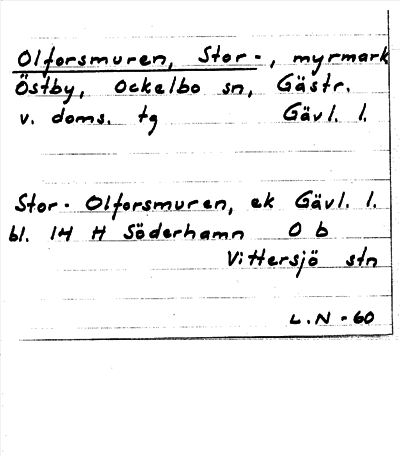 Olforsmuren, Stor-, myrmark
Östby, Ockelbo sn, Gästr.
v. doms. tg Gävl. l.
Stor-Olforsmuren, ek Gävl. l.
bl. 14 H Söderhamn 0 b
Vittersjö stn
L.N-60